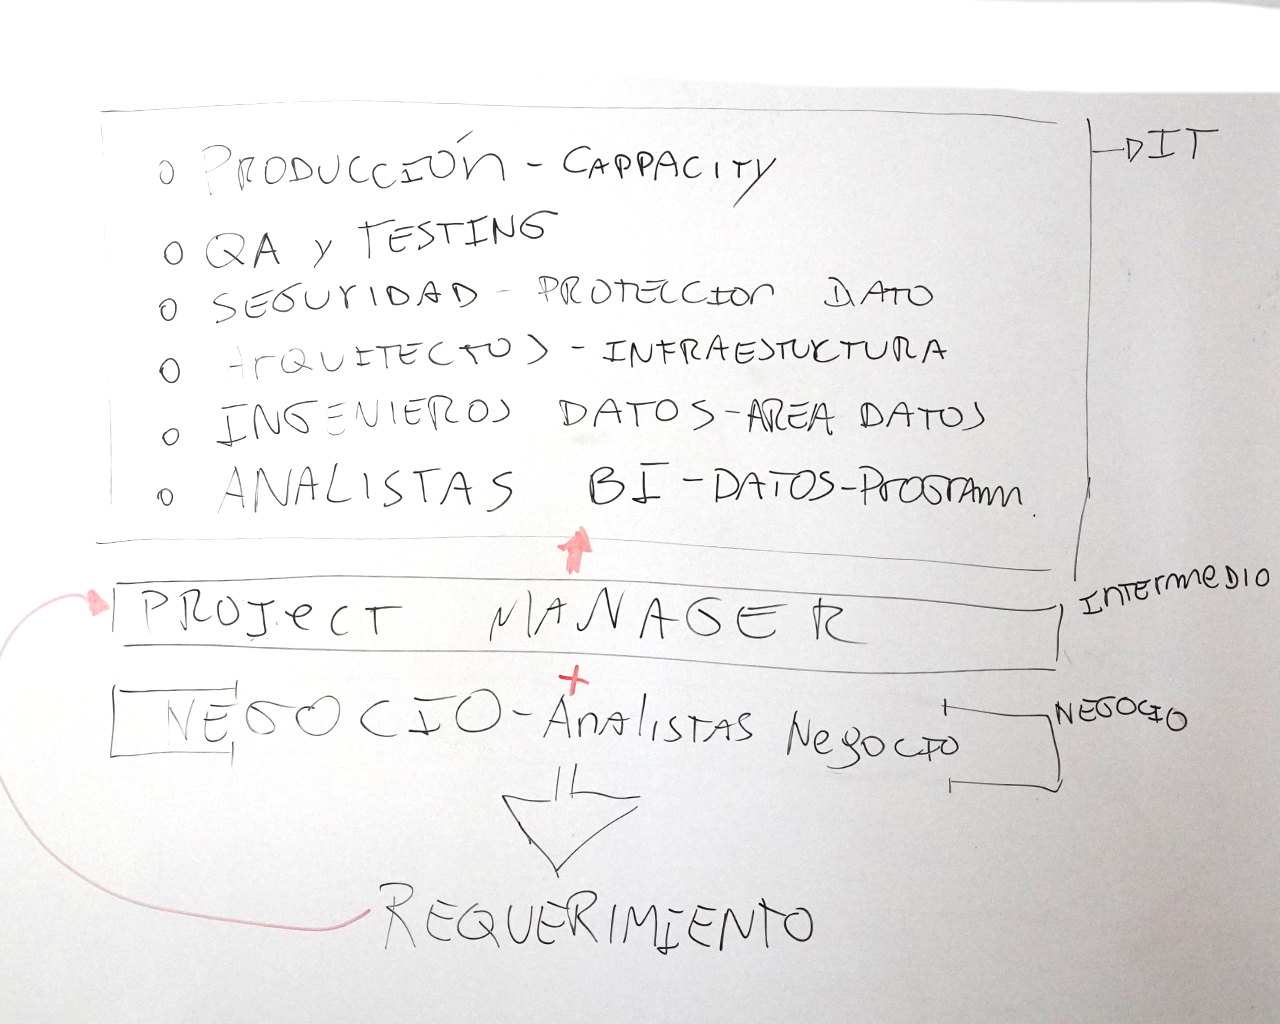 o PRODUCCIÓN - CAPPACITY
DIT
o QA y TESTING
o SEGURIDAD - PROTECCION DATO
o ARQUITECTOS - INFRAESTUCTURA
o INGENIEROS DATOS - AREA DATOS
o ANALISTAS BI - DATOS - PROGRAMM.
PROJECT MANAGER
INTERMEDIO
+
NEGOCIO - ANALISTAS NEGOCIO
NEGOCIO
REQUERIMIENTO